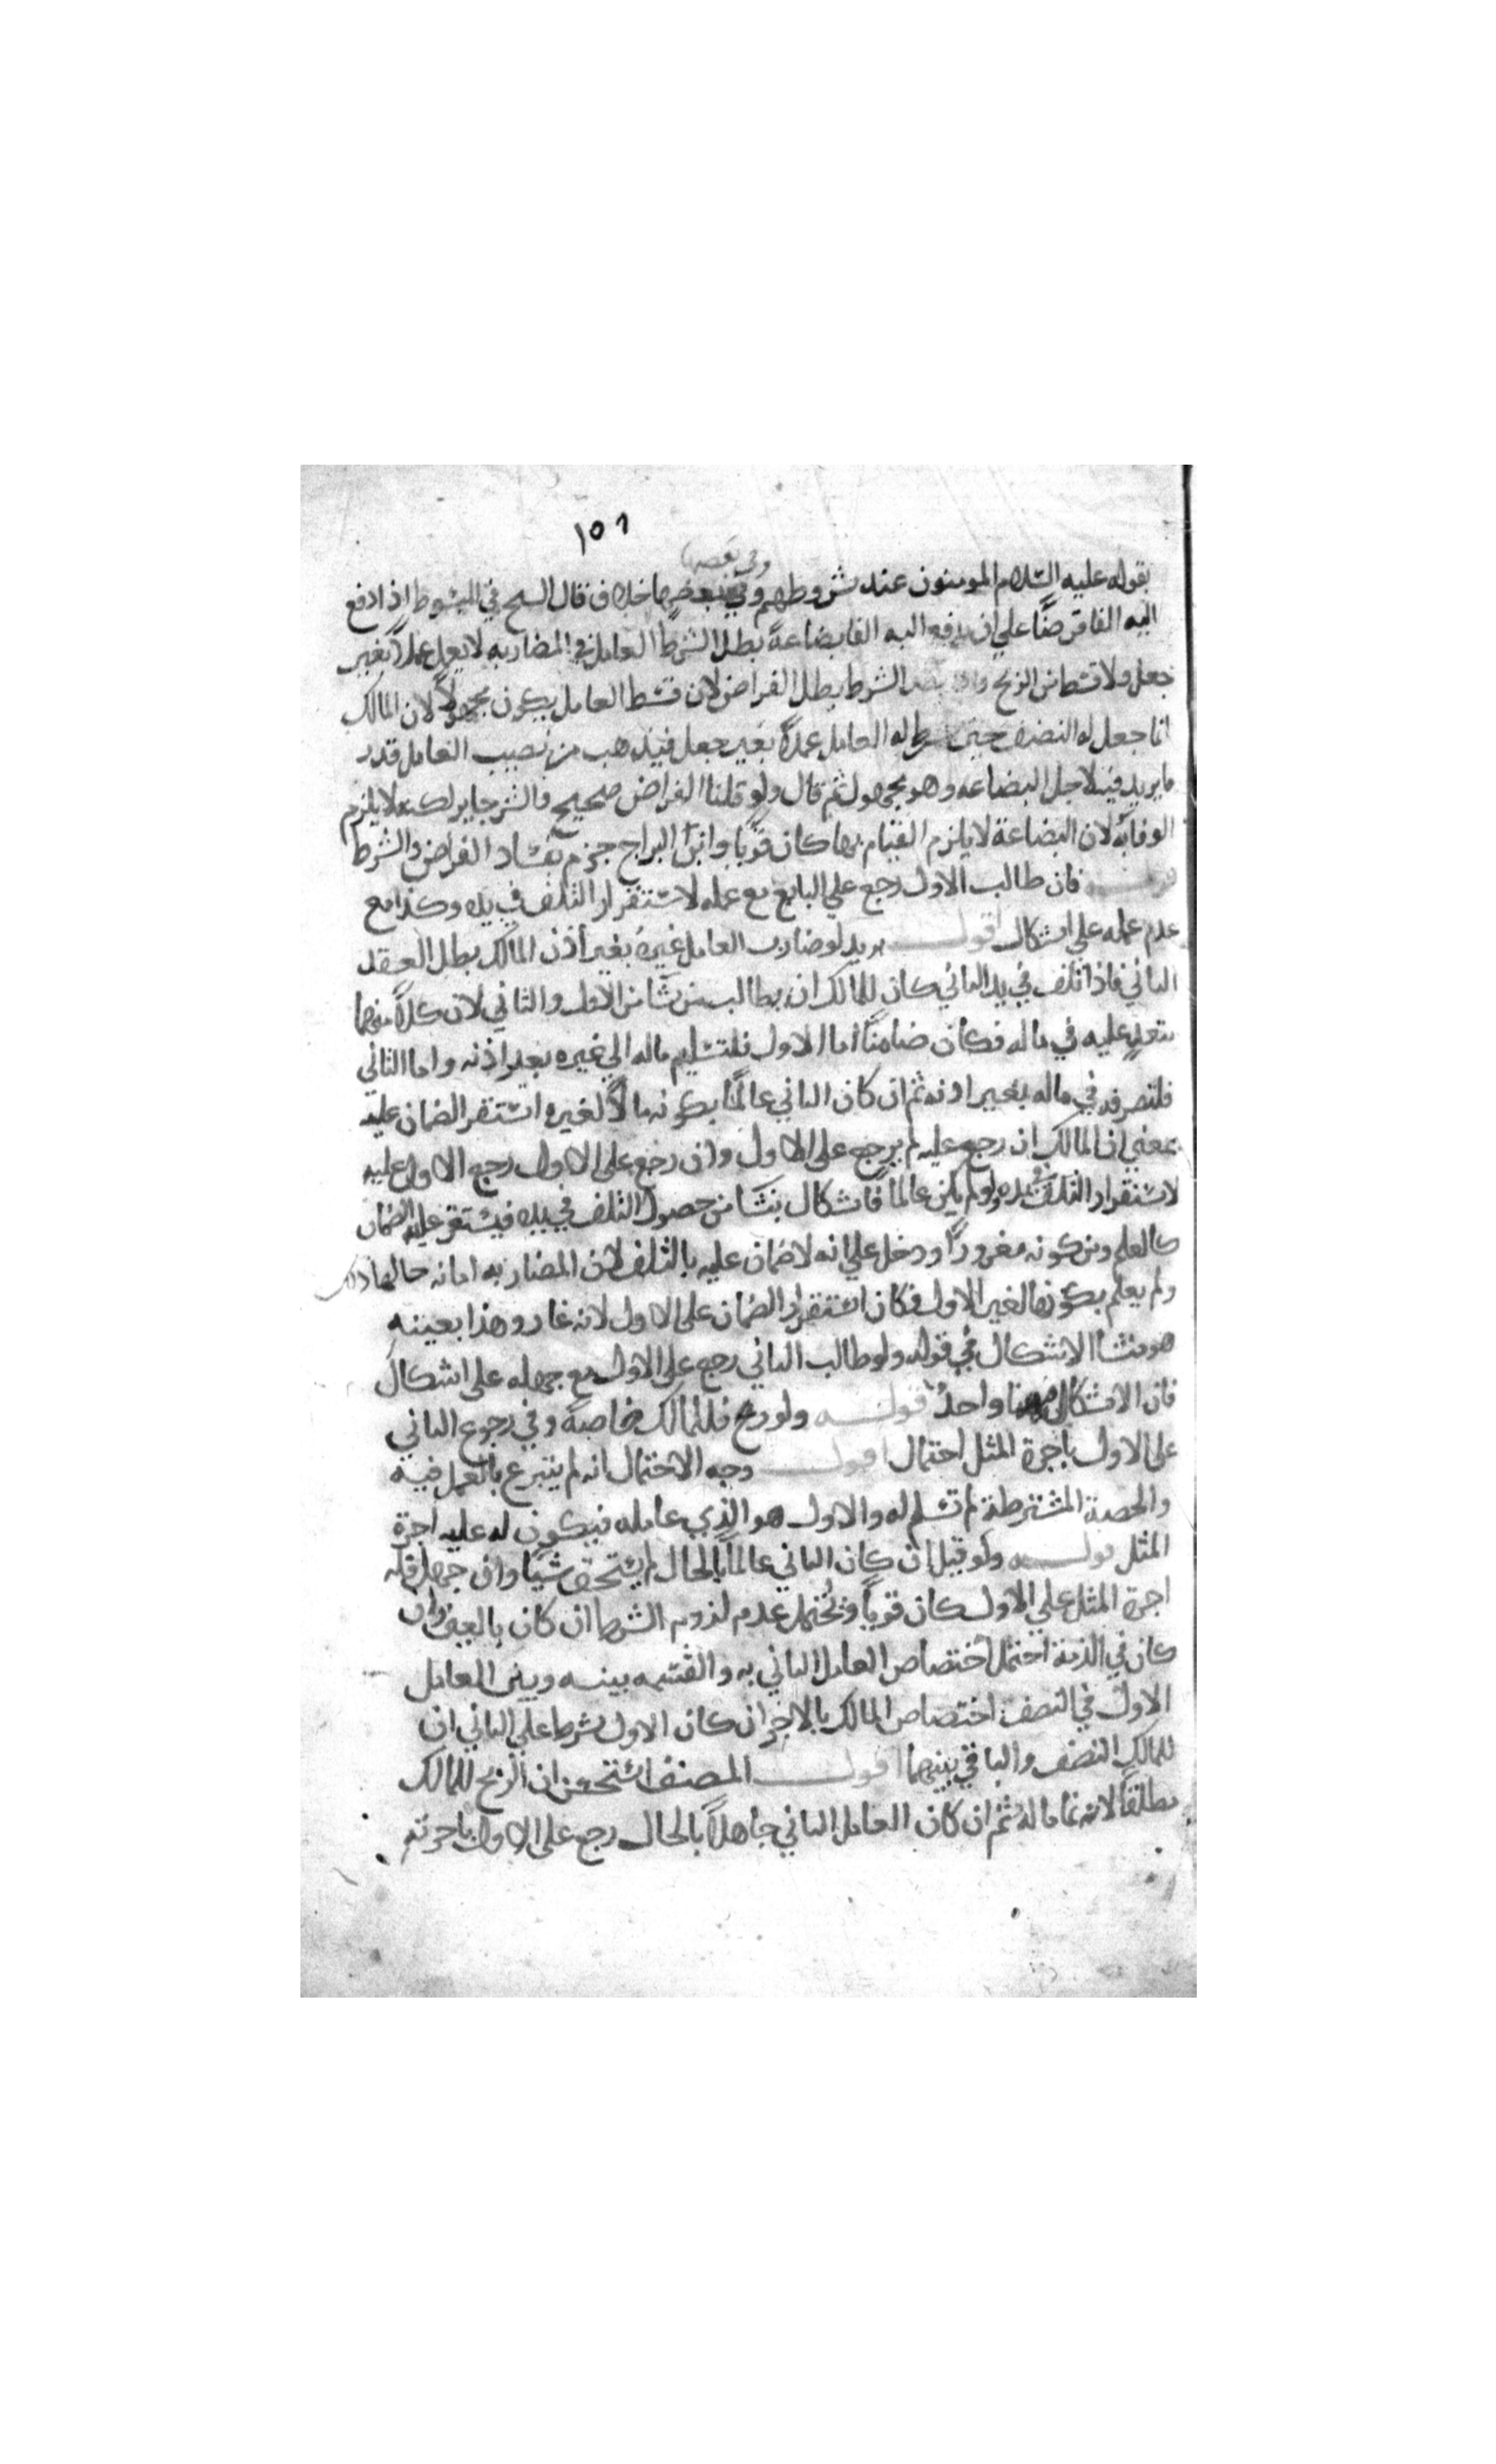 ١٥٦
وفي بعضها
بقوله عليه السلام المومنون عند شروطهم وفي بعضها خلاف قال الشيخ في المبسوط اذا دفع
اليه الفا قرضًا علي ان يدفع اليه الفا بضاعةً بطل الشرط العامل في المضاربه لا يعمل عملاً بغير
جعل ولا قسط من الربح واذا بطل الشرط بطل القراض لان قسط العامل يكون مجهولاً لان المالك
انما جعل له النصف حين شرط له العامل عملاً بغير جعل فيذهب من نصيب العامل قدر
ما يزيد فيه لاجل البضاعه وهو مجهول ثم قال ولو قلنا القراض صحيح والشرط جايز لكنه لا يلزم
الوفا به لان البضاعة لا يلزم القيام بها كان قويًا وابن البراج جزم بفساد القراض والشرط
قوله فان طالب الاول رجع علي البايع مع عمله لاستقرار التلف في يده وكذا مع
عدم علمه علي اشكال اقول يريد لو ضارب العامل غيره بغير اذن المالك بطل العقد
الثاني فاذا تلف في يد الثاني كان للمالك ان يطالب من شا من الاول والثاني لان كلاً منهما
متعدٍ عليه في ماله فكان ضامنًا اما الاول فلتسليم ماله الي غيره بغير اذنه واما الثاني
فلتصرفه في ماله بغير اذنه ثم ان كان الثاني عالمًا بكونه مالاً لغيره استقر الضمان عليه
بمعني ان المالك ان رجع عليه لم يرجع على الاول وان رجع على الاول رجع الاول عليه
لاستقرار التلف في يده ولو لم يكن عالمًا فاشكال ينشا من حصول التلف في يده فيستقر عليه الضمان
كالعلم ومن كونه مغرورًا ودخل علي انه لا ضمان عليه بالتلف لان المضاربه امانه حالها
ولم يعلم بكونها لغير الاول فكان استقرار الضمان على الاول لانه غار وهذا بعينه
هو منشا الاشكال في قوله ولو طالب الثاني رجع علي الاول مع جهله على اشكال
فان الاشكال هنا واحد قوله ولو ربح فللمالك خاصة وفي رجوع الثاني
على الاول باجرة المثل احتمال اقول وجه الاحتمال انه لم يتبرع بالعمل فيه
والحصة المشترطة لم تسلم له والاول هو الذي عامله فيكون له عليه اجرة
المثل قوله ولو قيل ان كان الثاني عالمًا بالحال لم يستحق شيًا وان جهل فله
اجرة المثل علي الاول كان قويًا ويحتمل عدم لزوم الشرط ان كان بالعين وان
كان في الذمة احتمل اختصاص العامل الثاني به والقسمه بينه وبين العامل
الاول في النصف اختصاص المالك بالاخر ان كان الاول شرط علي الثاني ان
للمالك النصف والباقي بينهما اقول المصنف استحسن ان الربح للمالك
مطلقًا لانه نما ماله ثم ان كان العامل الثاني جاهلاً بالحال رجع على الاول باجرته